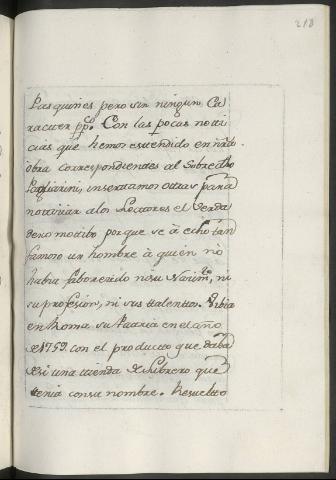 218
Pasquines pero sin ningun Ca
racter pp.co Con las pocas noti
cias que hemos estendido en nrâ
obra correspondientes al Sobredho
Pagliarini, insertamos otras para
noticiar a los Lectores el Verda
dero motibo porque se à echo tan
famoso un hombre à quien no
habia faborecido ni su Nacim.to, ni
su profesion, ni sus talentos. Vibia
en Roma su Patria en el año
de 1759. con el producto que daba
de si una tienda de Librero que
tenia con su nombre. Resuelto